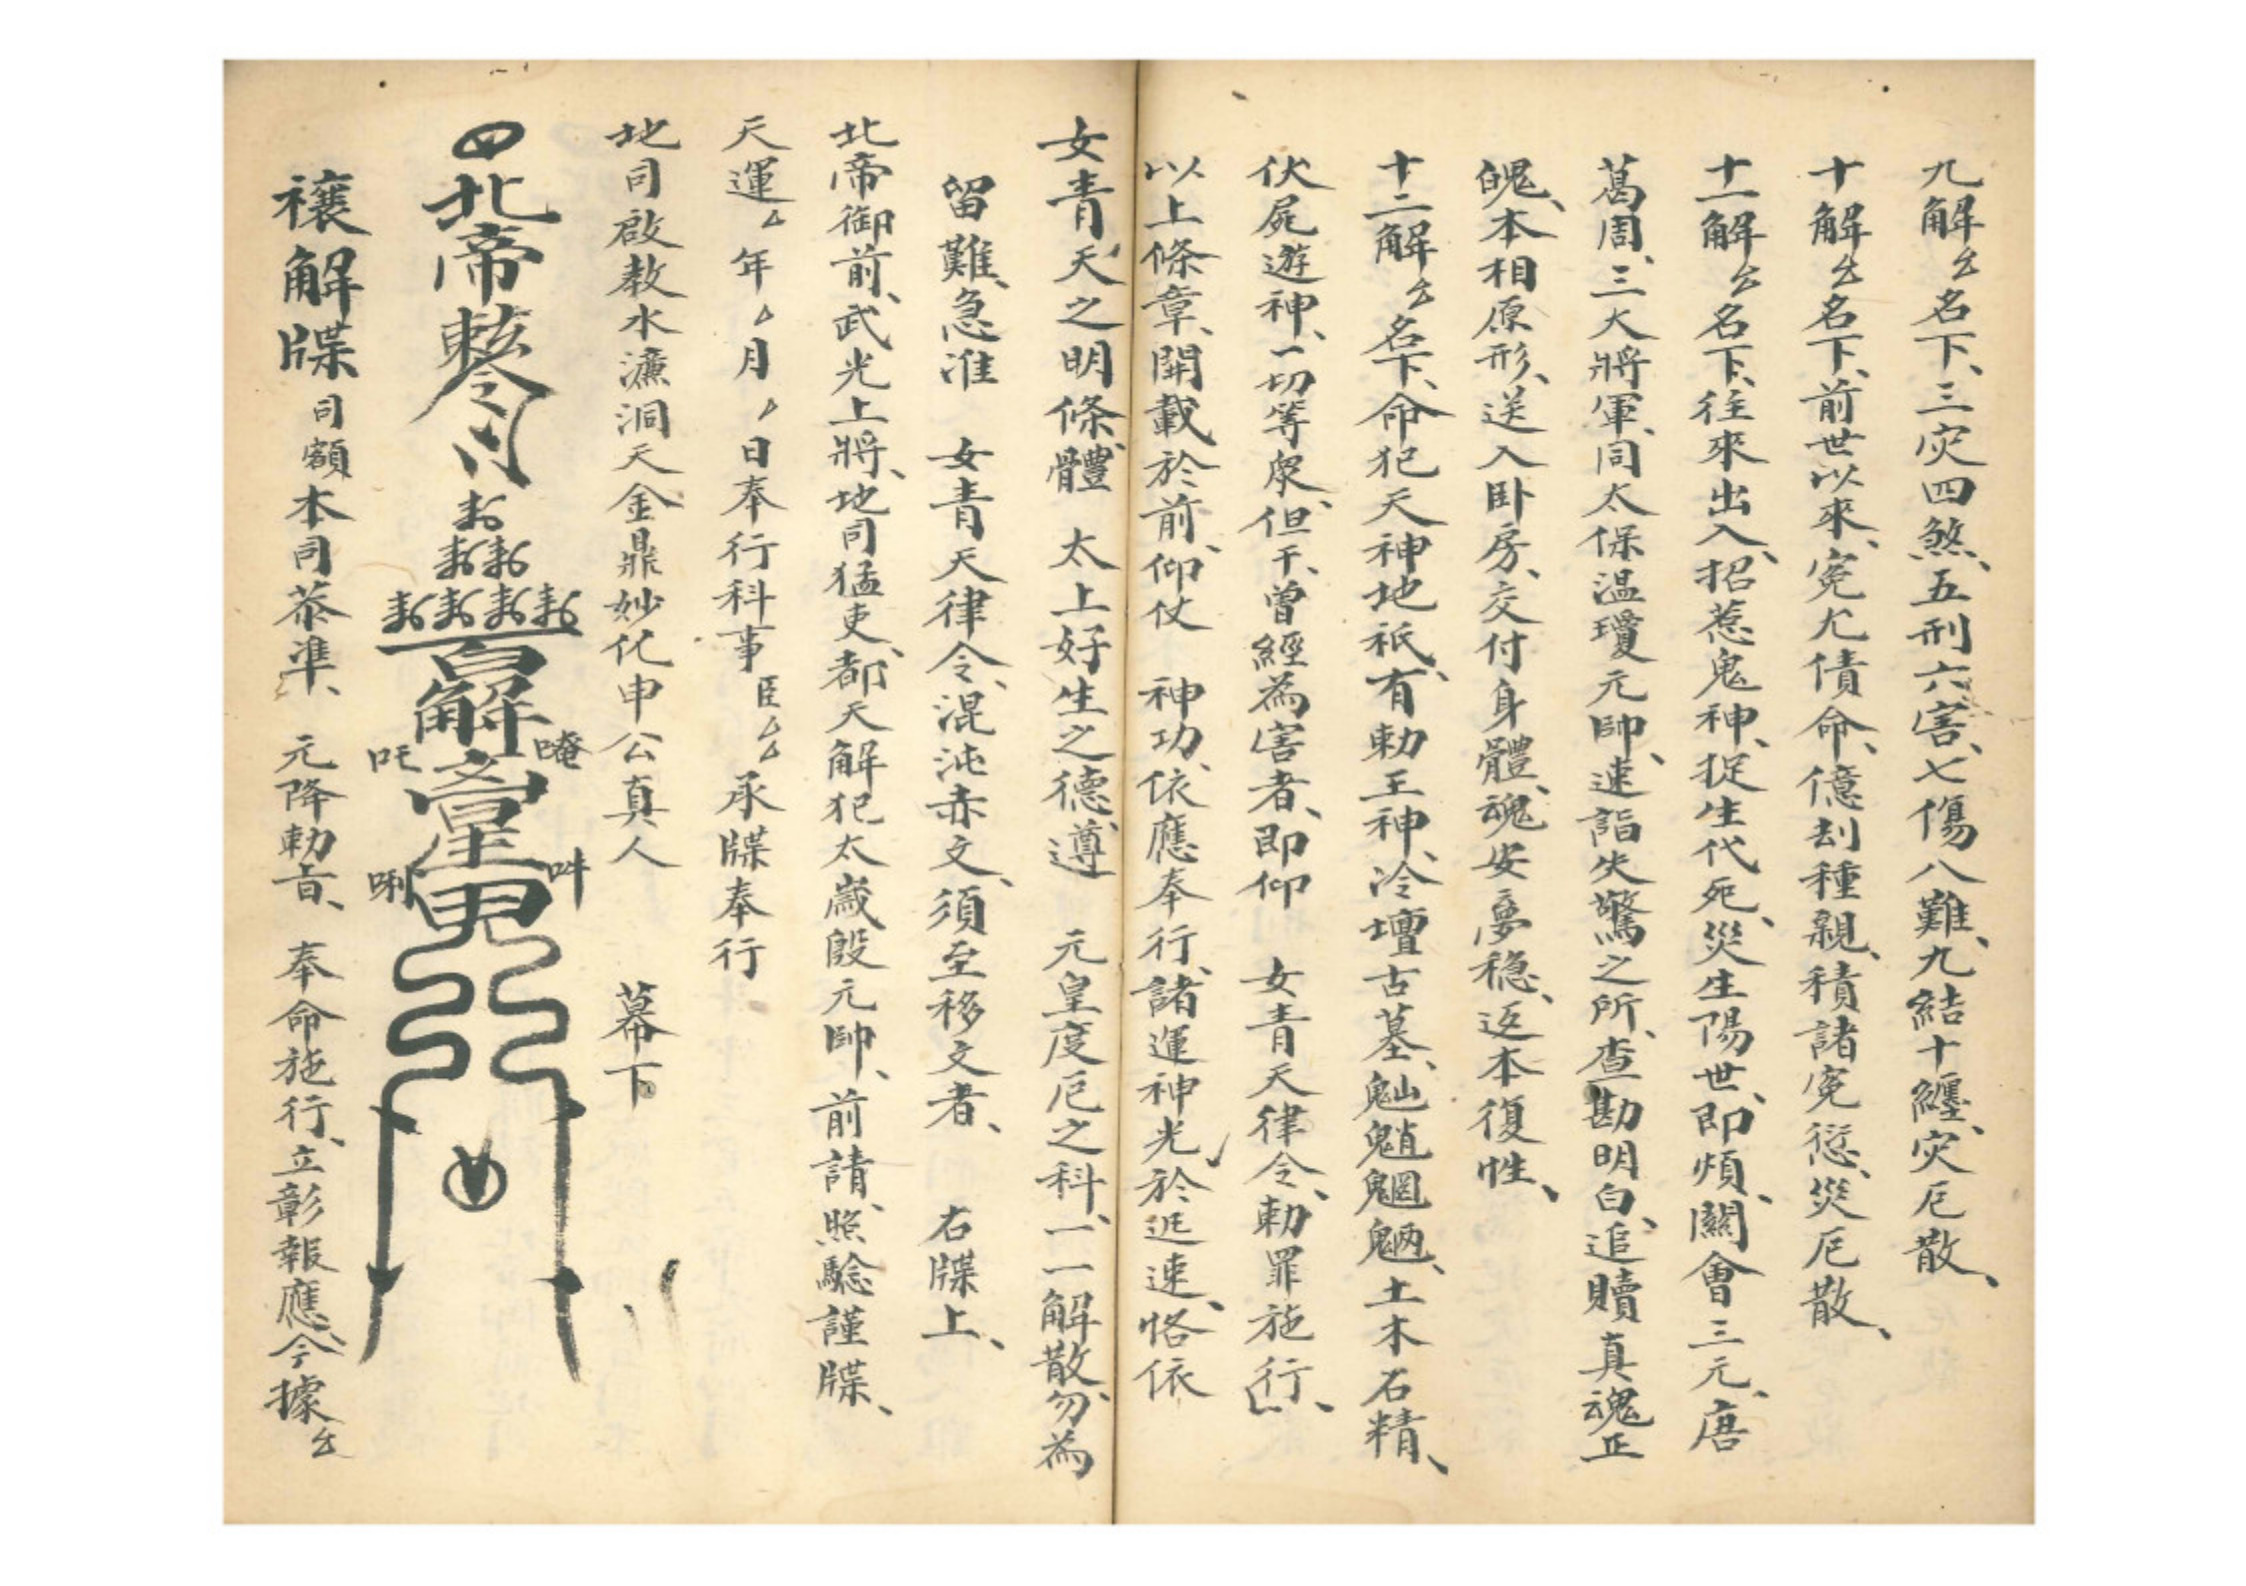 九解厶名下、三灾四煞、五刑六害、七傷八難、九結十纏、灾厄散、
十解厶名下、前世以來、冤尤債命、億刼種親、積諸冤愆、災厄散、
十一解厶名下、往來出入、招惹鬼神、捉生代死、災生陽世、即煩、關會三元、唐
葛周、三大將軍、同太保温瓊元帥、速詣失驚之所、查勘明白、追贖真魂正
魄、本相原形、送入卧房、交付身體、魂安夢穏、返本復性、
十二解厶名下、命犯天神地祇、有勅王神、冷壇古墓、魈魍魎、土木石精、
伏屍遊神、一切等衆、但干、曾經為害者、即仰 女青天律令、勅罪施行、
以上條章、開載於前、仰仗 神功、依應奉行、諸運神光於迅速、恪依
女青天之明條、體 太上好生之德、遵 元皇度厄之科、一一解散、勿為
留難、急准 女青天律令、混沌赤文、須至移文者、 右牒上、
北帝御前、武光上將、地司猛吏、都天解犯太歲殷元帥、前請、照驗謹牒、
天運 年 月 日奉行科事 臣厶厶 承牒奉行
地司啟教水濂洞天金鼎妙化申公真人 幕下
北帝勅令
百解
唵
吽
吒
唎
禳解牒 司額 本司恭準、 元降勅旨、 奉命施行、立彰報應、今據厶